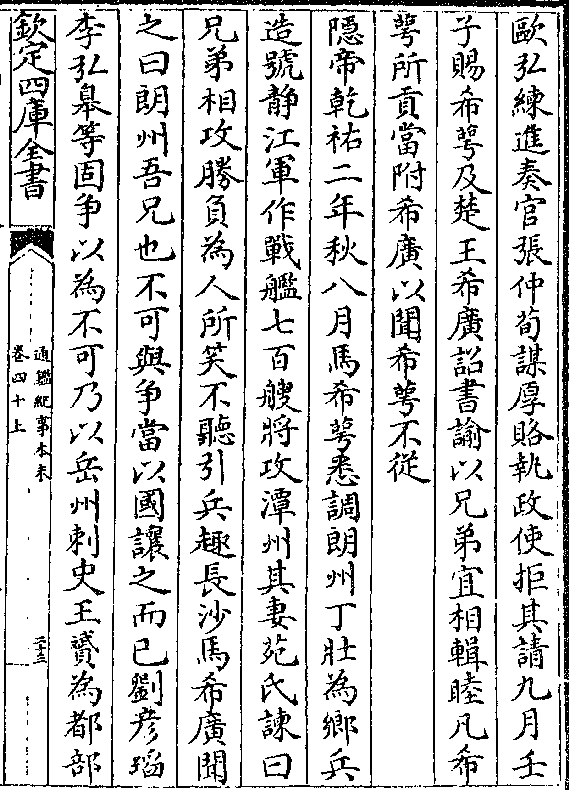 歐弘練進奏官張仲荀謀厚賂執政使拒其請九月壬
子賜希萼及楚王希廣詔書諭以兄弟宜相輯睦凡希
萼所貢當附希廣以聞希萼不從
隱帝乾祐二年秋八月馬希萼悉調朗州丁壯為鄉兵
造號静江軍作戰艦七百艘將攻潭州其妻苑氏諫曰
兄弟相攻勝負為人所笑不聽引兵趣長沙馬希廣聞
之曰朗州吾兄也不可與爭當以國讓之而已劉彦瑫
李弘臯等固爭以為不可乃以岳州刺史王贇為都部
欽定四庫全書
通鑑紀事本末
卷四十上
二十三